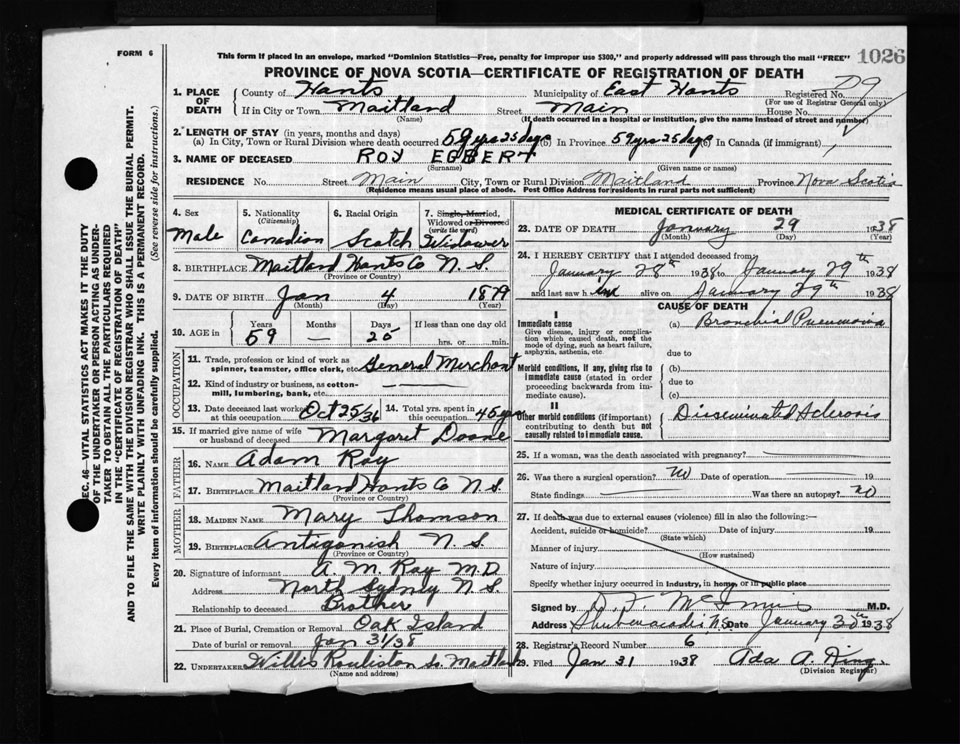 FORM 6
This form if placed in an envelope, marked "Dominion Statistics—Free, penalty for improper use $300," and properly addressed will pass through the mail "FREE"
1026
PROVINCE OF NOVA SCOTIA—CERTIFICATE OF REGISTRATION OF DEATH
SEC. 46—VITAL STATISTICS ACT MAKES IT THE DUTY
OF THE UNDERTAKER OR PERSON ACTING AS UNDER-
TAKER TO OBTAIN ALL THE PARTICULARS REQUIRED
IN THE "CERTIFICATE OF REGISTRATION OF DEATH" AND TO FILE THE SAME WITH THE DIVISION REGISTRAR WHO SHALL ISSUE THE BURIAL PERMIT.
WRITE PLAINLY WITH UNFADING INK. THIS IS A PERMANENT RECORD.
Every item of information should be carefully supplied. (See reverse side for instructions.)
1. PLACE OF DEATH
County of Hants Municipality of East Hants Registered No. 79
(For use of Registrar General only)
If in City or Town Maitland Street Main House No.
(Name) (If death occurred in a hospital or institution, give the name instead of street and number)
2. LENGTH OF STAY (in years, months and days)
(a) In City, Town or Rural Division where death occurred 59 yrs 25 days (b) In Province 59 yrs 25 days (c) In Canada (if immigrant)
3. NAME OF DECEASED ROY EGBERT
(Surname) (Given name or names)
RESIDENCE No. Street Main City, Town or Rural Division Maitland Province Nova Scotia
(Residence means usual place of abode. Post Office Address for residents in rural parts not sufficient)
4. Sex Male
5. Nationality (Citizenship) Canadian
6. Racial Origin Scotch
7. Single, Married, Widowed or Divorced (write the word) Widower
8. BIRTHPLACE Maitland Hants Co N. S.
(Province or Country)
9. DATE OF BIRTH Jan 4 1879
(Month) (Day) (Year)
10. AGE in Years 59 Months — Days 25 If less than one day old hrs. or min.
OCCUPATION
11. Trade, profession or kind of work as spinner, teamster, office clerk, etc. General Merchant
12. Kind of industry or business, as cotton-mill, lumbering, bank, etc.
13. Date deceased last worked at this occupation Oct 25/36
14. Total yrs. spent in this occupation 45 yrs
15. If married give name of wife or husband of deceased Margaret Doane
FATHER
16. NAME Adam Roy
17. BIRTHPLACE Maitland Hants Co N.S.
(Province or Country)
MOTHER
18. MAIDEN NAME Mary Thomson
19. BIRTHPLACE Antigonish N. S.
(Province or Country)
20. Signature of informant A. M. Roy M.D
Address North Sydney N. S.
Relationship to deceased Brother
21. Place of Burial, Cremation or Removal Oak Island
Date of burial or removal Jan 31/38
22. UNDERTAKER Willis So. Maitland
(Name and address)
MEDICAL CERTIFICATE OF DEATH
23. DATE OF DEATH January 29 1938
(Month) (Day) (Year)
24. I HEREBY CERTIFY that I attended deceased from:
January 28th 1938 to January 29th 1938
and last saw him alive on January 29th 1938
CAUSE OF DEATH
I
Immediate cause
Give disease, injury or complication which caused death, not the mode of dying, such as heart failure, asphyxia, asthenia, etc
(a) Bronchial Pneumonia
due to
Morbid conditions, if any, giving rise to immediate cause (stated in order proceeding backwards from immediate cause).
(b)
due to
(c)
II
Other morbid conditions (if important) contributing to death but not causally related to immediate cause.
Disseminated Sclerosis
25. If a woman, was the death associated with pregnancy?
26. Was there a surgical operation? no Date of operation 19
State findings Was there an autopsy? no
27. If death was due to external causes (violence) fill in also the following:—
Accident, suicide or homicide? Date of injury 19
(State which)
Manner of injury
(How sustained)
Nature of injury
Specify whether injury occurred in industry, in home, or in public place
Signed by D. F. McInnis M.D.
Address Shubenacadie N.S. Date January 30th 1938
28. Registrar's Record Number 6
29. Filed Jan 31 1938 Ada A. King
(Division Registrar)